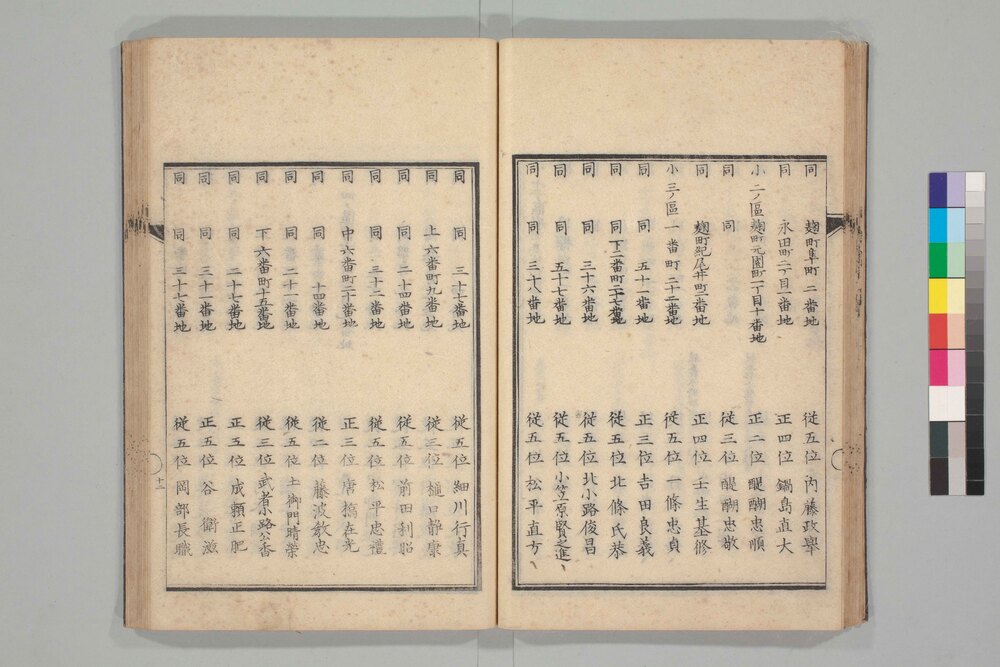 同 麹町隼町二番地 從五位 內藤政擧
同 永田町二丁目一番地 正四位 鍋島直大
小二ノ區 麹町元園町一丁目十番地 正二位 醍醐忠順
同 同 從三位 醍醐忠敬
同 麹町紀尾井町二番地 正四位 壬生基修
小三ノ區 一番町二十二番地 從五位 一條忠貞
同 同 五十一番地 正三位 吉田良義
同 同 下二番町二十七番地 從五位 北條氏恭
同 同 三十六番地 從五位 北小路俊昌
同 同 五十七番地 從五位 小笠原賢之進
同 同 三十八番地 從五位 松平直方
同 同 三十七番地 從五位 細川行真
同 上六番町九番地 從三位 樋口靜康
同 同 二十四番地 從五位 前田利昭
同 同 三十二番地 從五位 松平忠禮
同 中六番町二十番地 正三位 唐橋在光
同 同 十四番地 從二位 藤波教忠
同 同 二十一番地 從五位 土御門晴榮
同 下六番町十五番地 從三位 武者小路公香
同 同 二十七番地 正五位 成瀬正肥
同 同 三十一番地 正五位 谷 衛滋
同 同 三十七番地 從五位 岡部長職
十二